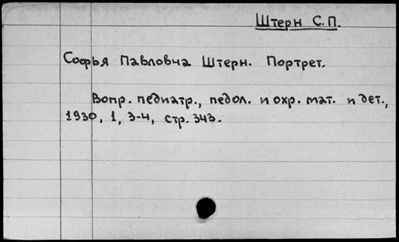 Штерн С.П.
Софья Павловна Штерн. Портрет.
Вопр. педиатр., педол. и охр. мат. и дет.,
1930, 1, 3-4, стр. 343.